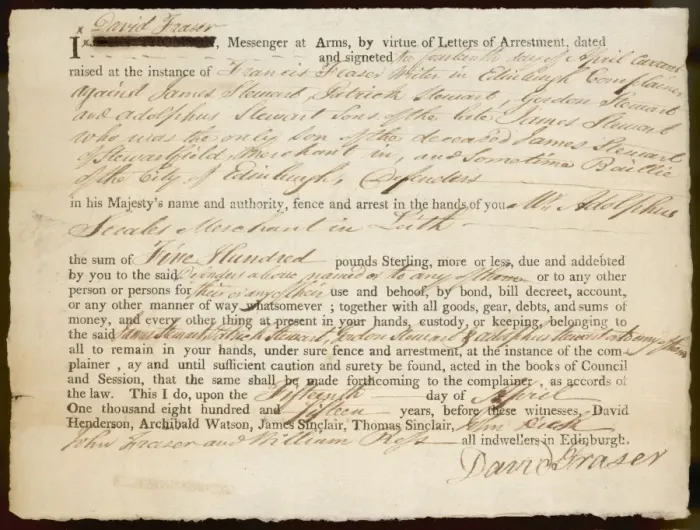 David Fraser
I, Messenger at Arms, by virtue of Letters of Arrestment, dated
and signeted the fourteenth day of April Current
raised at the instance of Francis Fraser Writer in Edinburgh Complainer
against James Stewart, Patrick Stewart, Gordon Stewart
and Adolphus Stewart Sons of the late James Stewart
who was the only son of the deceased James Stewart
of Stewartfield, Merchant in, and sometime Baillie
of the City of Edinburgh, Defenders
in his Majesty's name and authority, fence and arrest in the hands of you Mr. Adolphus
Merchant in Leith
the sum of Five Hundred pounds Sterling, more or less, due and addebted
by you to the said Defenders above named or to any of them or to any other
person or persons for their or any of their use and behoof, by bond, bill decreet, account,
or any other manner of way whatsomever ; together with all goods, gear, debts, and sums of
money, and every other thing at present in your hands, custody, or keeping, belonging to
the said James Stewart, Patrick Stewart, Gordon Stewart & Adolphus Stewart or to any of them
all to remain in your hands, under sure fence and arrestment, at the instance of the com-
plainer , ay and until sufficient caution and surety be found, acted in the books of Council
and Session, that the same shall be made forthcoming to the complainer , as accords of
the law. This I do, upon the Fifteenth day of April
One thousand eight hundred and fifteen years, before these witnesses, David
Henderson, Archibald Watson, James Sinclair, Thomas Sinclair,
John Fraser and William Ross all indwellers in Edinburgh.
David Fraser